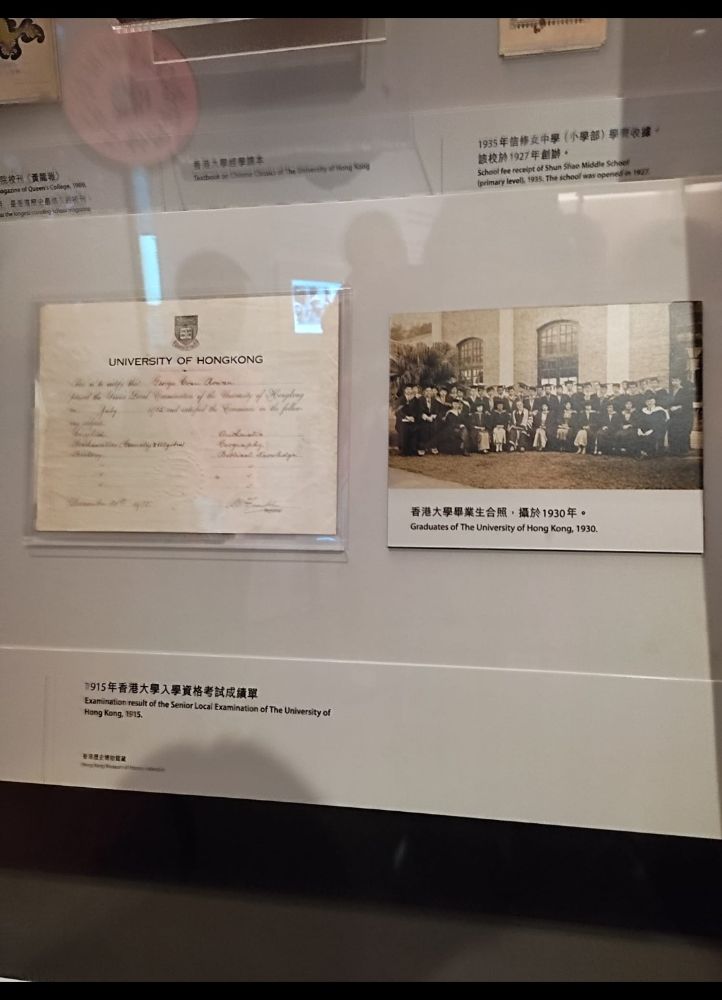 院校刊《黃龍報》
agazine of Queen's College, 1909.
as the longest standing school magazine
香港大學經學讀本
Textbook on Chinese Classics of The University of Hong Kong
1935年信修女中學（小學部）學費收據。
該校於1927年創辦。
School fee receipt of Shun Shao Middle School
(primary level), 1935. The school was opened in 1927.
UNIVERSITY OF HONGKONG
This is to certify that George
passed the Senior Local Examination of the University of Hongkong
in July and satisfied the Examiners in the follow-
ing subjects
English
Arithmetic
Mathematics
Geography
History
Biblical Knowledge
December
香港大學畢業生合照，攝於1930年。
Graduates of The University of Hong Kong, 1930.
1915年香港大學入學資格考試成績單
Examination result of the Senior Local Examination of The University of
Hong Kong, 1915.
香港歷史博物館藏
Hong Kong Museum of History Collection